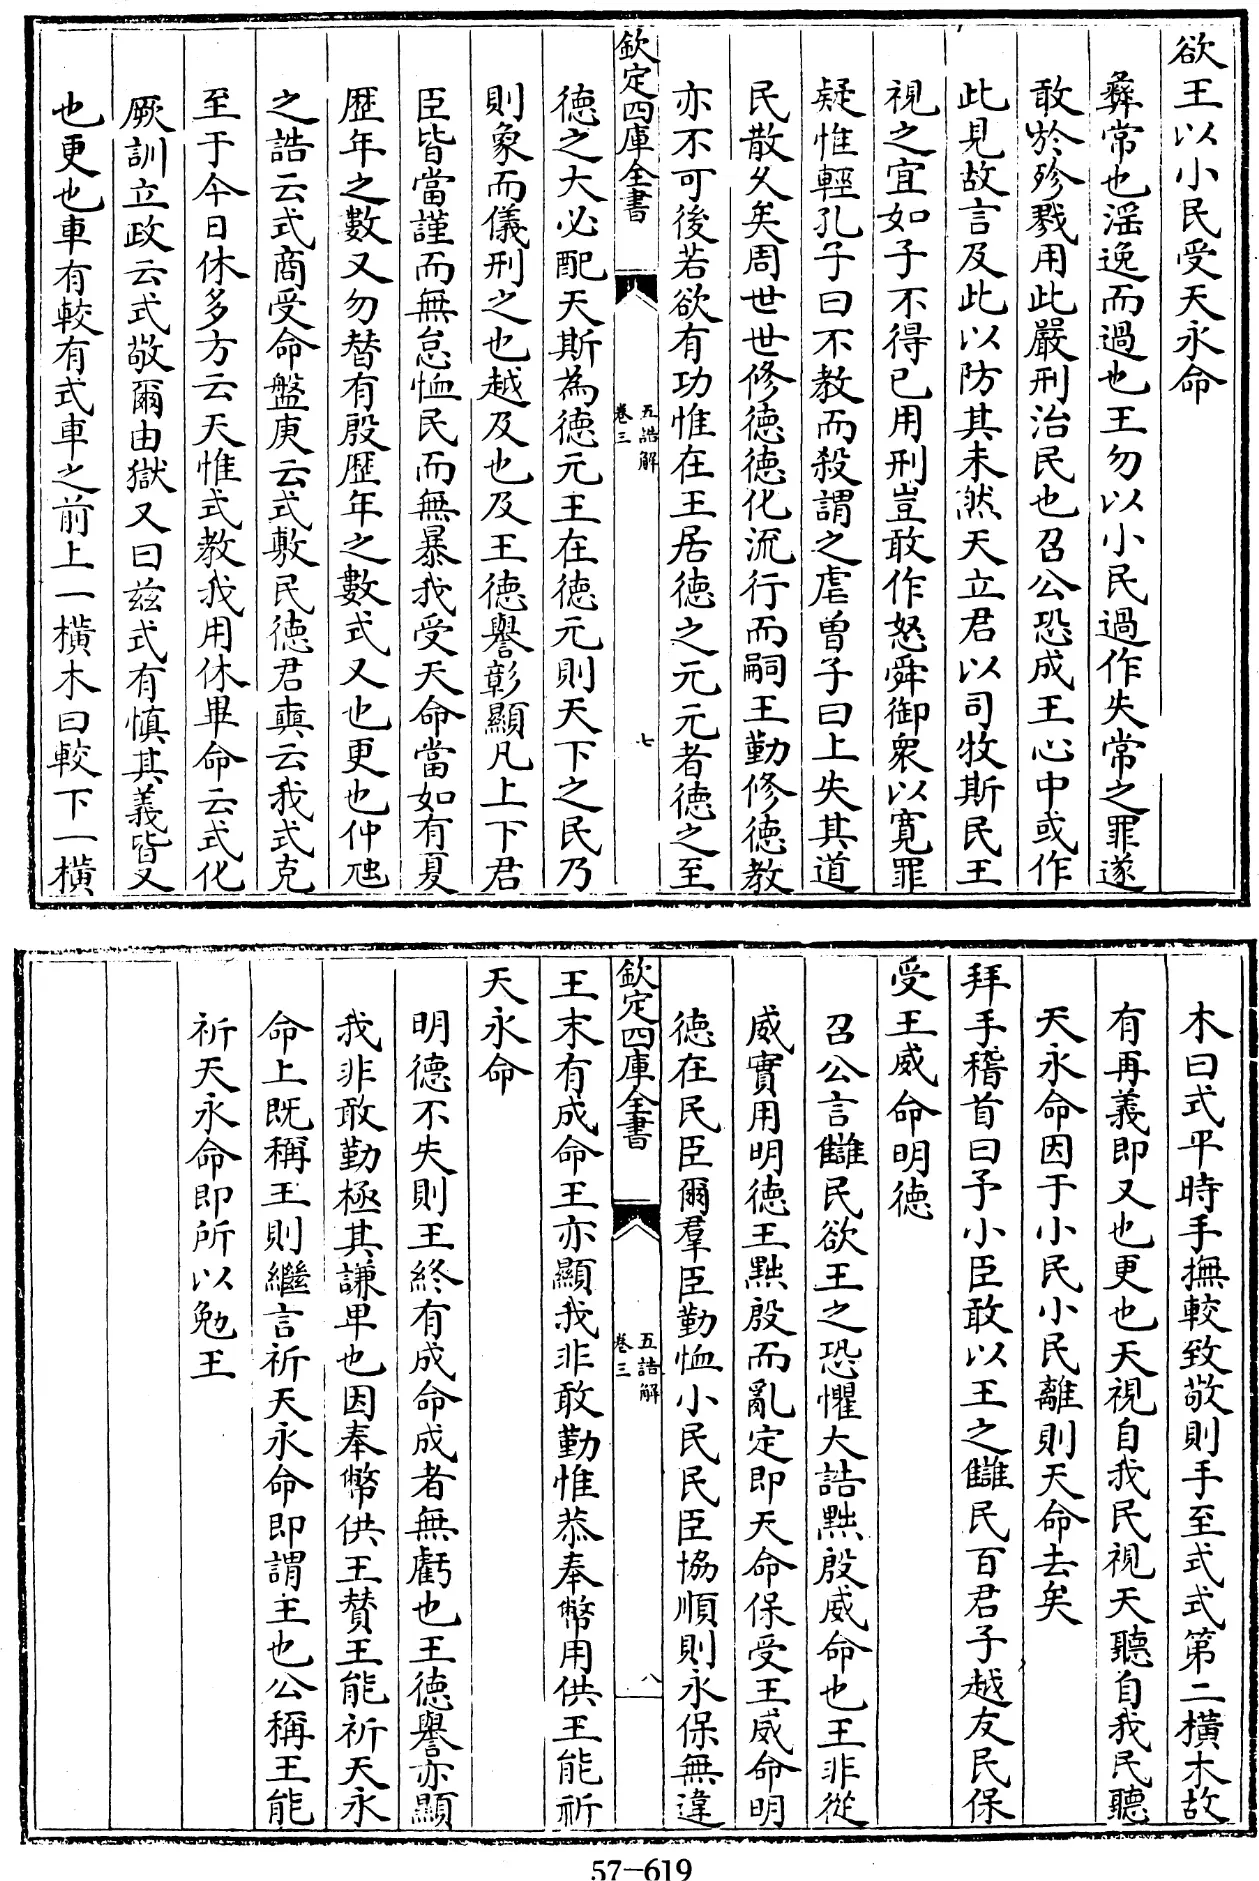 欲王以小民受天永命
彝常也淫逸而過也王勿以小民過作失常之罪遂
敢於殄戮用此嚴刑治民也召公恐成王心中或作
此見故言及此以防其未然天立君以司牧斯民王
視之宜如子不得已用刑豈敢作怒舜御衆以寛罪
疑惟輕孔子曰不教而殺謂之虐曽子曰上失其道
民散久矣周世世修徳徳化流行而嗣王勤修徳教
亦不可後若欲有功惟在王居徳之元元者徳之至
欽定四庫全書
五誥解
卷三
七
徳之大必配天斯為徳元王在徳元則天下之民乃
則象而儀刑之也越及也及王徳譽彰顯凡上下君
臣皆當謹而無怠恤民而無暴我受天命當如有夏
歴年之數又勿替有殷歴年之數式又也更也仲虺
之誥云式商受命盤庚云式敷民徳君奭云我式克
至于今日休多方云天惟式教我用休畢命云式化
厥訓立政云式敬爾由獄又曰兹式有慎其義皆又
也更也車有較有式車之前上一横木曰較下一横
木曰式平時手撫較致敬則手至式式第二横木故
有再義即又也更也天視自我民視天聽自我民聽
天永命因于小民小民離則天命去矣
拜手稽首曰予小臣敢以王之讎民百君子越友民保
受王威命明徳
召公言讎民欲王之恐懼大誥黜殷威命也王非從
威實用明徳王黜殷而亂定即天命保受王威命明
徳在民臣爾羣臣勤恤小民民臣協順則永保無違
欽定四庫全書
五誥解
卷三
八
王末有成命王亦顯我非敢勤惟恭奉幣用供王能祈
天永命
明徳不失則王終有成命成者無虧也王徳譽亦顯
我非敢勤極其謙卑也因奉幣供王賛王能祈天永
命上既稱王則繼言祈天永命即謂主也公稱王能
祈天永命即所以勉王
57-619